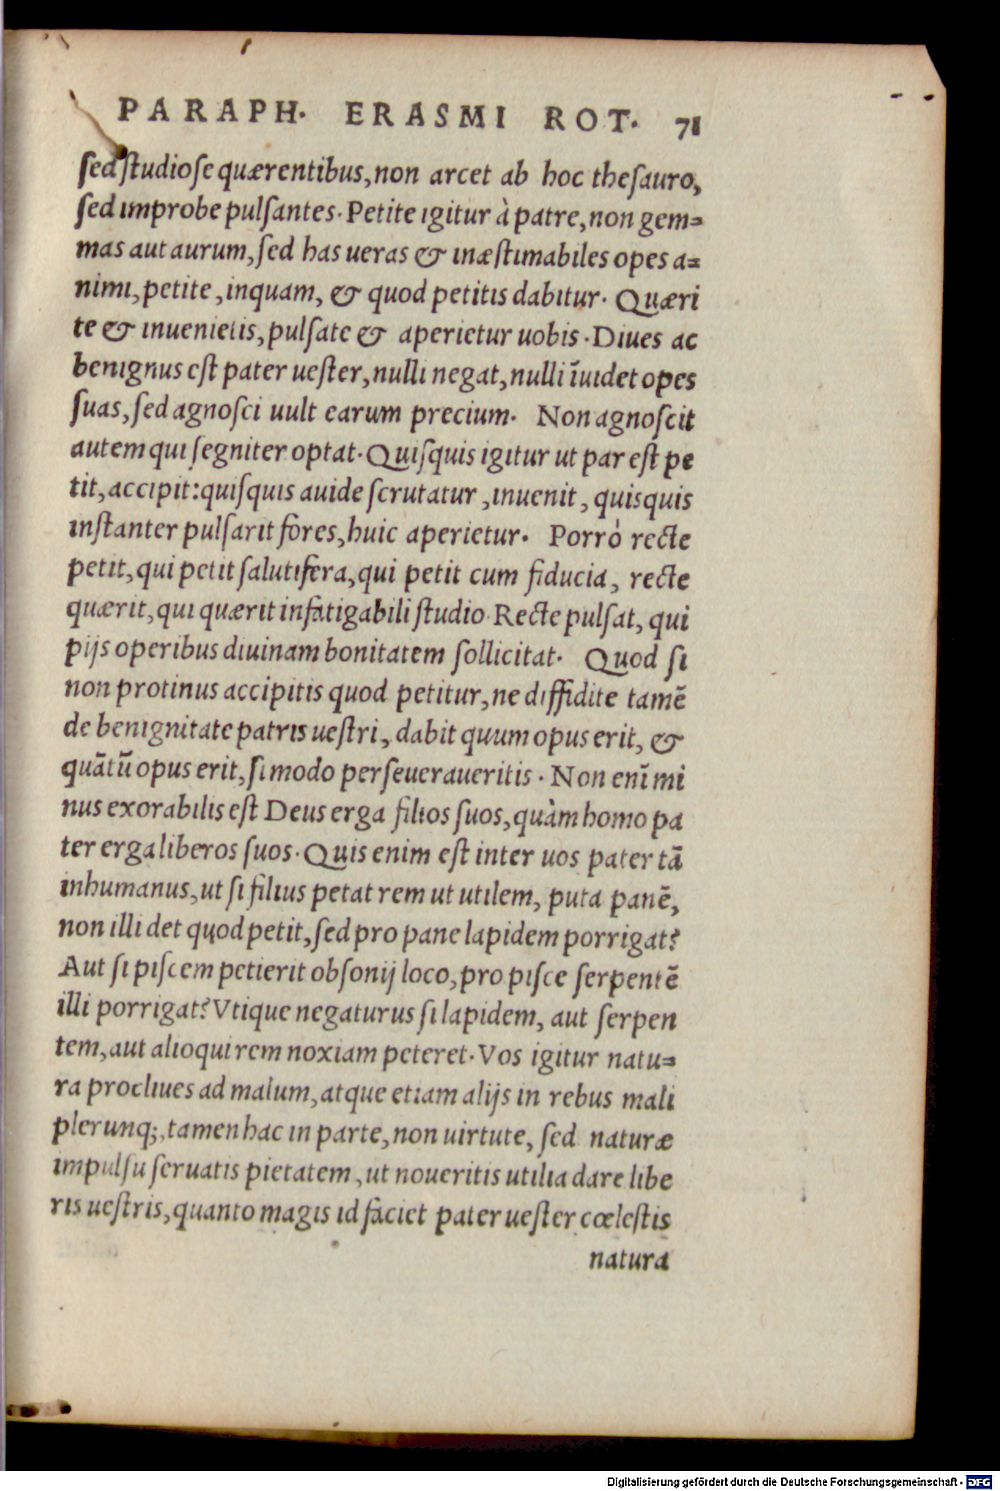 PARAPH. ERASMI ROT. 71
sed studiose quærentibus, non arcet ab hoc thesauro,
sed improbe pulsantes. Petite igitur à patre, non gem=
mas aut aurum, sed has ueras & inæstimabiles opes a=
nimi, petite, inquam, & quod petitis dabitur. Quæri
te & inuenietis, pulsate & aperietur uobis. Diues ac
benignus est pater uester, nulli negat, nulli īuidet opes
suas, sed agnosci uult earum precium. Non agnoscit
autem qui segniter optat. Quisquis igitur ut par est pe
tit, accipit: quisquis auide scrutatur, inuenit, quisquis
instanter pulsarit fores, huic aperietur. Porrò recte
petit, qui petit salutifera, qui petit cum fiducia, recte
quærit, qui quærit infatigabili studio. Recte pulsat, qui
pijs operibus diuinam bonitatem sollicitat. Quod si
non protinus accipitis quod petitur, ne diffidite tamē
de benignitate patris uestri, dabit quum opus erit, &
quātū opus erit, si modo perseueraueritis. Non enī mi
nus exorabilis est Deus erga filios suos, quàm homo pa
ter erga liberos suos. Quis enim est inter uos pater tā
inhumanus, ut si filius petat rem ut utilem, puta panē,
non illi det quod petit, sed pro pane lapidem porrigat?
Aut si piscem petierit obsonij loco, pro pisce serpentē
illi porrigat? Vtique negaturus si lapidem, aut serpen
tem, aut alioqui rem noxiam peteret. Vos igitur natu=
ra procliues ad malum, atque etiam alijs in rebus mali
plerunq;, tamen hac in parte, non uirtute, sed naturæ
impulsu seruatis pietatem, ut noueritis utilia dare libe
ris uestris, quanto magis id faciet pater uester cœlestis
natura
Digitalisierung gefördert durch die Deutsche Forschungsgemeinschaft - DFG